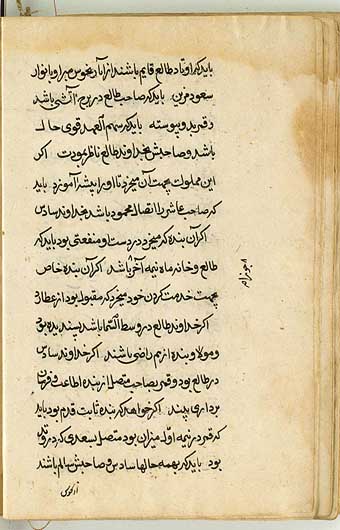 باید که اوتاد طالع قایم باشند از آثار نحوس مبرا و بانوار
سعود مزین باید که صاحب طالع در برج آتشی باشد
و قمر بدو پیوسته باید که سهم العهد قوی حال
باشد و صاحبش بخداوند طالع ناظر بمودت اگر
این مملوک بجهت آن میخرد تا او را پیشه آموزد باید
که صاحب عاشر را اتصال محمود باشد بخداوند سادس
اگر آن بنده که میخرد در دست او منفعتی بود باید که
طالع و خانه ماه نیمه آخر باشد اگر آن بنده خاص
بجهت خدمت کردن خود میخرد که مقبول بود از عطارد
اگر خداوند طالع در وسط السما باشد پسندیده بود
و مولا و بنده از هم راضی باشند اگر خداوند سادس
در طالع بود و قمر بصاحب متصل از بنده اطاعت و فرمان
برداری بیند اگر خواهد که بنده ثابت قدم بود باید
که قمر در نیمه اول میزان بود متصل بسعدی که در وتد
بود باید که بهمه حالها سادس و صاحبش سالم باشند